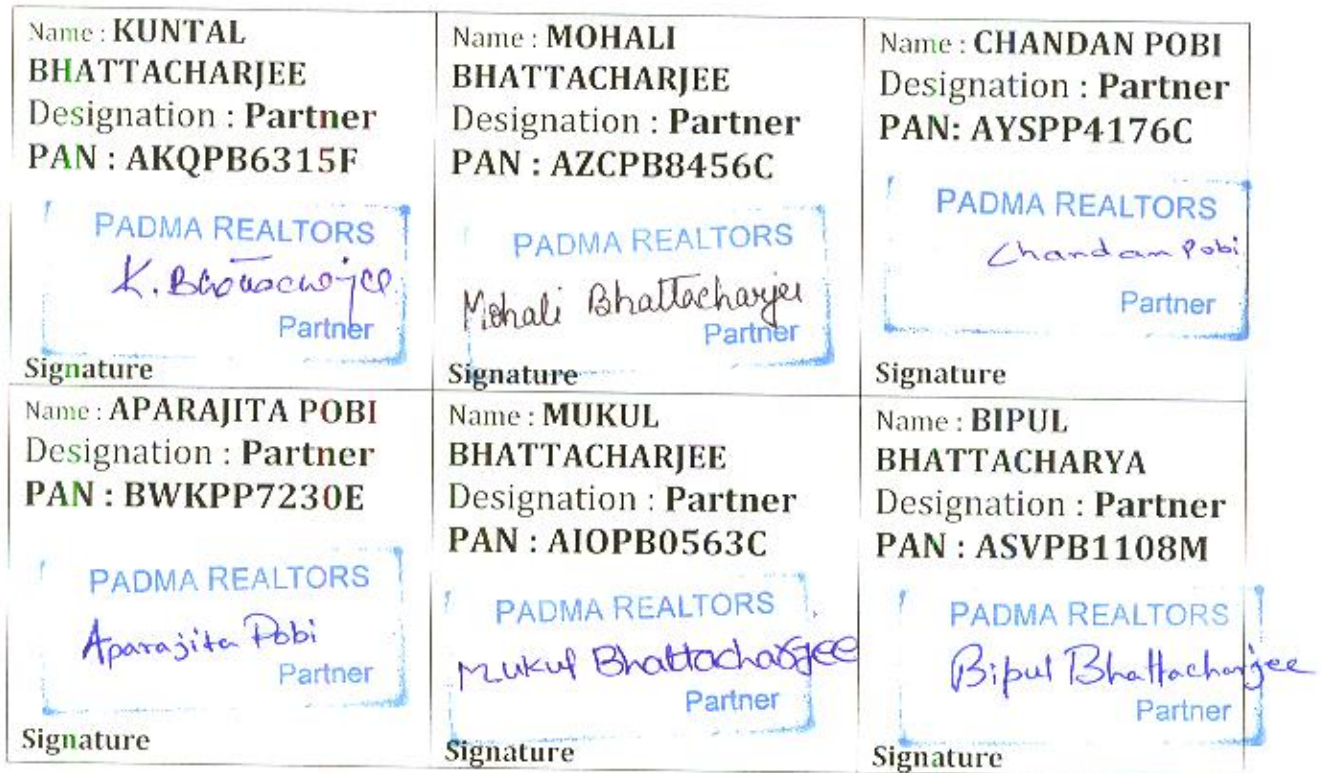 Name : KUNTAL
BHATTACHARJEE
Designation : Partner
PAN : AKQPB6315F
PADMA REALTORS
K. Bhattacharjee
Partner
Signature
Name : MOHALI
BHATTACHARJEE
Designation : Partner
PAN : AZCPB8456C
PADMA REALTORS
Mohali Bhattacharjee
Partner
Signature
Name : CHANDAN POBI
Designation : Partner
PAN: AYSPP4176C
PADMA REALTORS
Chandan Pobi
Partner
Signature
Name : APARAJITA POBI
Designation : Partner
PAN : BWKPP7230E
PADMA REALTORS
Aparajita Pobi
Partner
Signature
Name : MUKUL
BHATTACHARJEE
Designation : Partner
PAN : AIOPB0563C
PADMA REALTORS
Mukul Bhattacharjee
Partner
Signature
Name : BIPUL
BHATTACHARYA
Designation : Partner
PAN : ASVPB1108M
PADMA REALTORS
Bipul Bhattacharjee
Partner
Signature